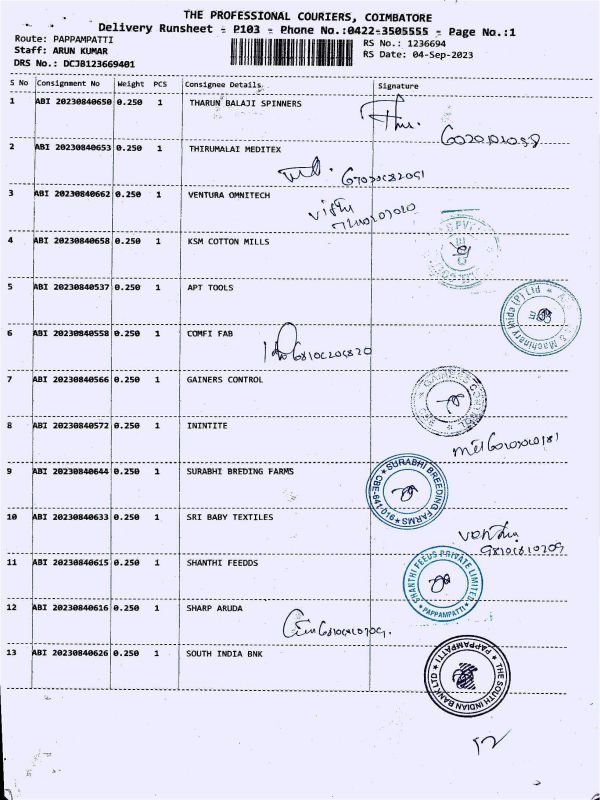 THE PROFESSIONAL COURIERS, COIMBATORE
Delivery Runsheet - P103 - Phone No.:0422-3505555 - Page No.:1
Route: PAPPAMPATTI
Staff: ARUN KUMAR
DRS No.: DCJB123669401
RS No.: 1236694
RS Date: 04-Sep-2023
S No Consignment No Weight PCS Consignee Details Signature
1 ABI 20230840650 0.250 1 THARUN BALAJI SPINNERS
2 ABI 20230840653 0.250 1 THIRUMALAI MEDITEX
3 ABI 20230840662 0.250 1 VENTURA OMNITECH
4 ABI 20230840658 0.250 1 KSM COTTON MILLS
5 ABI 20230840537 0.250 1 APT TOOLS
& Machinery Inida (P) Ltd
6 ABI 20230840558 0.250 1 COMFI FAB
7 ABI 20230840566 0.250 1 GAINERS CONTROL
8 ABI 20230840572 0.250 1 ININTITE
9 ABI 20230840644 0.250 1 SURABHI BREDING FARMS
SURABHI BREEDING FARMS
CBE-641 016
10 ABI 20230840633 0.250 1 SRI BABY TEXTILES
11 ABI 20230840615 0.250 1 SHANTHI FEEDDS
SHANTHI FEEDS PRIVATE LIMITED
PAPPAMPATTI
12 ABI 20230840616 0.250 1 SHARP ARUDA
13 ABI 20230840626 0.250 1 SOUTH INDIA BNK
THE SOUTH INDIAN BANK LTD
PAPPAMPATTI